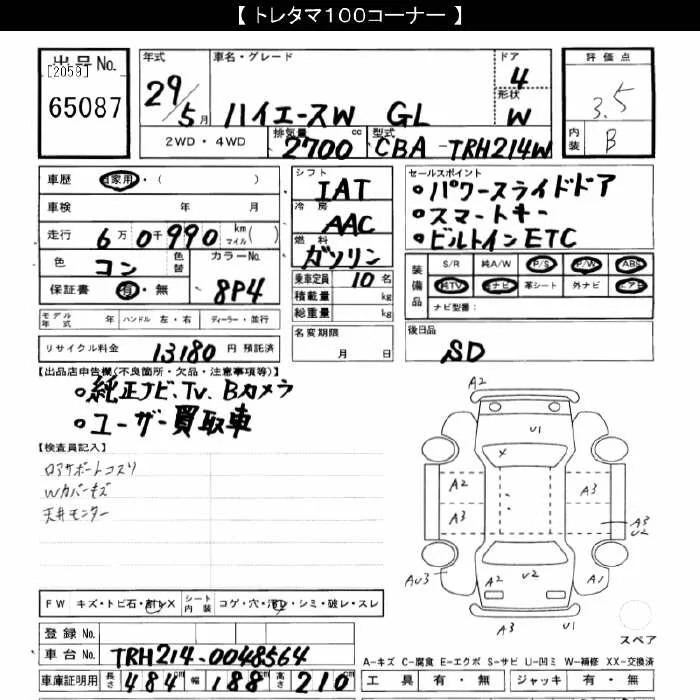 【 トレタマ100コーナー 】
出品No.
[2059]
65087
年式
29/5月
車名・グレード
ハイエースW GL
ドア
4
形状
W
評価点
3.5
内装
B
2WD・4WD
排気量
2700 cc
型式
CBA-TRH214W
車歴 自家用・( )
車検 年 月
走行 6万0千990 km マイル( )
色 コン 色替
カラーNo. 8P4
保証書 有・無
シフト
IAT
冷房
AAC
燃料
ガソリン
乗車定員 10名
積載量 kg
総重量 kg
セールスポイント
○パワースライドドア
○スマートキー
○ビルトインETC
装備品
S/R 純A/W P/S P/W ABS
純TV 純ナビ 革シート 外ナビ エアB
ナビ型番：
モデル年式 年 ハンドル 左・右 ディーラー・並行
名変期限
月 日
後日品
SD
リサイクル料金 13180 円 預託済
【出品店申告欄(不良箇所・欠品・注意事項等)】
○純正ナビ、TV、Bカメラ
○ユーザー買取車
【検査員記入】
ロアサポートコスリ
Wカバーキズ
天井モニター
A2
U1
A2
A3
A3
A3
U2
AU3
U2
A1
A3
U1
スペア
FW キズ・トビ石・割レX
シート内装 コゲ・穴・汚レ・シミ・破レ・スレ
登録No.
車台No. TRH214-0048564
車庫証明用 長さ 484 幅 188 高さ 210
A-キズ C-腐食 E-エクボ S-サビ U-凹ミ W-補修 XX-交換済
工具 有・無 ジャッキ 有・無